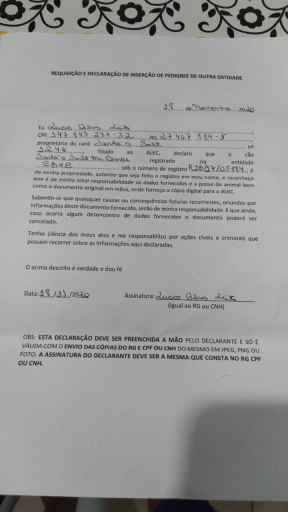 REQUISIÇÃO E DECLARAÇÃO DE INSERÇÃO DE PEDIGREE DE OUTRA ENTIDADE
18 de Novembro 2020
Eu Lucas
CPF 347 143 RG 27467
proprietário do canil nº
3246, filiado ao ALKC, declaro que o cão
registrado na entidade
sob o número de registro é
de minha propriedade, autorizo que seja feito o registro em meu nome, e reconheço
que é de minha total responsabilidade os dados fornecidos e a posse do animal bem
como o documento original em mãos, onde forneço a cópia digital para o ALKC.
Sabendo-se que quaisquer causas ou consequências futuras recorrentes, oriundos por
informações deste documento fornecido, serão de minha responsabilidade. E que ainda,
caso ocorra algum desencontro de dados fornecidos o documento poderá ser
cancelado.
Tenho ciência dos meus atos e me responsabilizo por ações cíveis e criminais que
possam recorrer sobre as informações aqui declaradas.
O acima descrito é verdade e dou fé
Data: 18/11/2020 Assinatura: Lucas
(Igual ao RG ou CNH)
OBS: ESTA DECLARAÇÃO DEVE SER PREENCHIDA A MÃO PELO DECLARANTE E SÓ É
VÁLIDA COM O ENVIO DAS CÓPIAS DO RG E CPF OU CNH DO MESMO EM JPEG, PNG OU
FOTO. A ASSINATURA DO DECLARANTE DEVE SER A MESMA QUE CONSTA NO RG CPF
OU CNH.